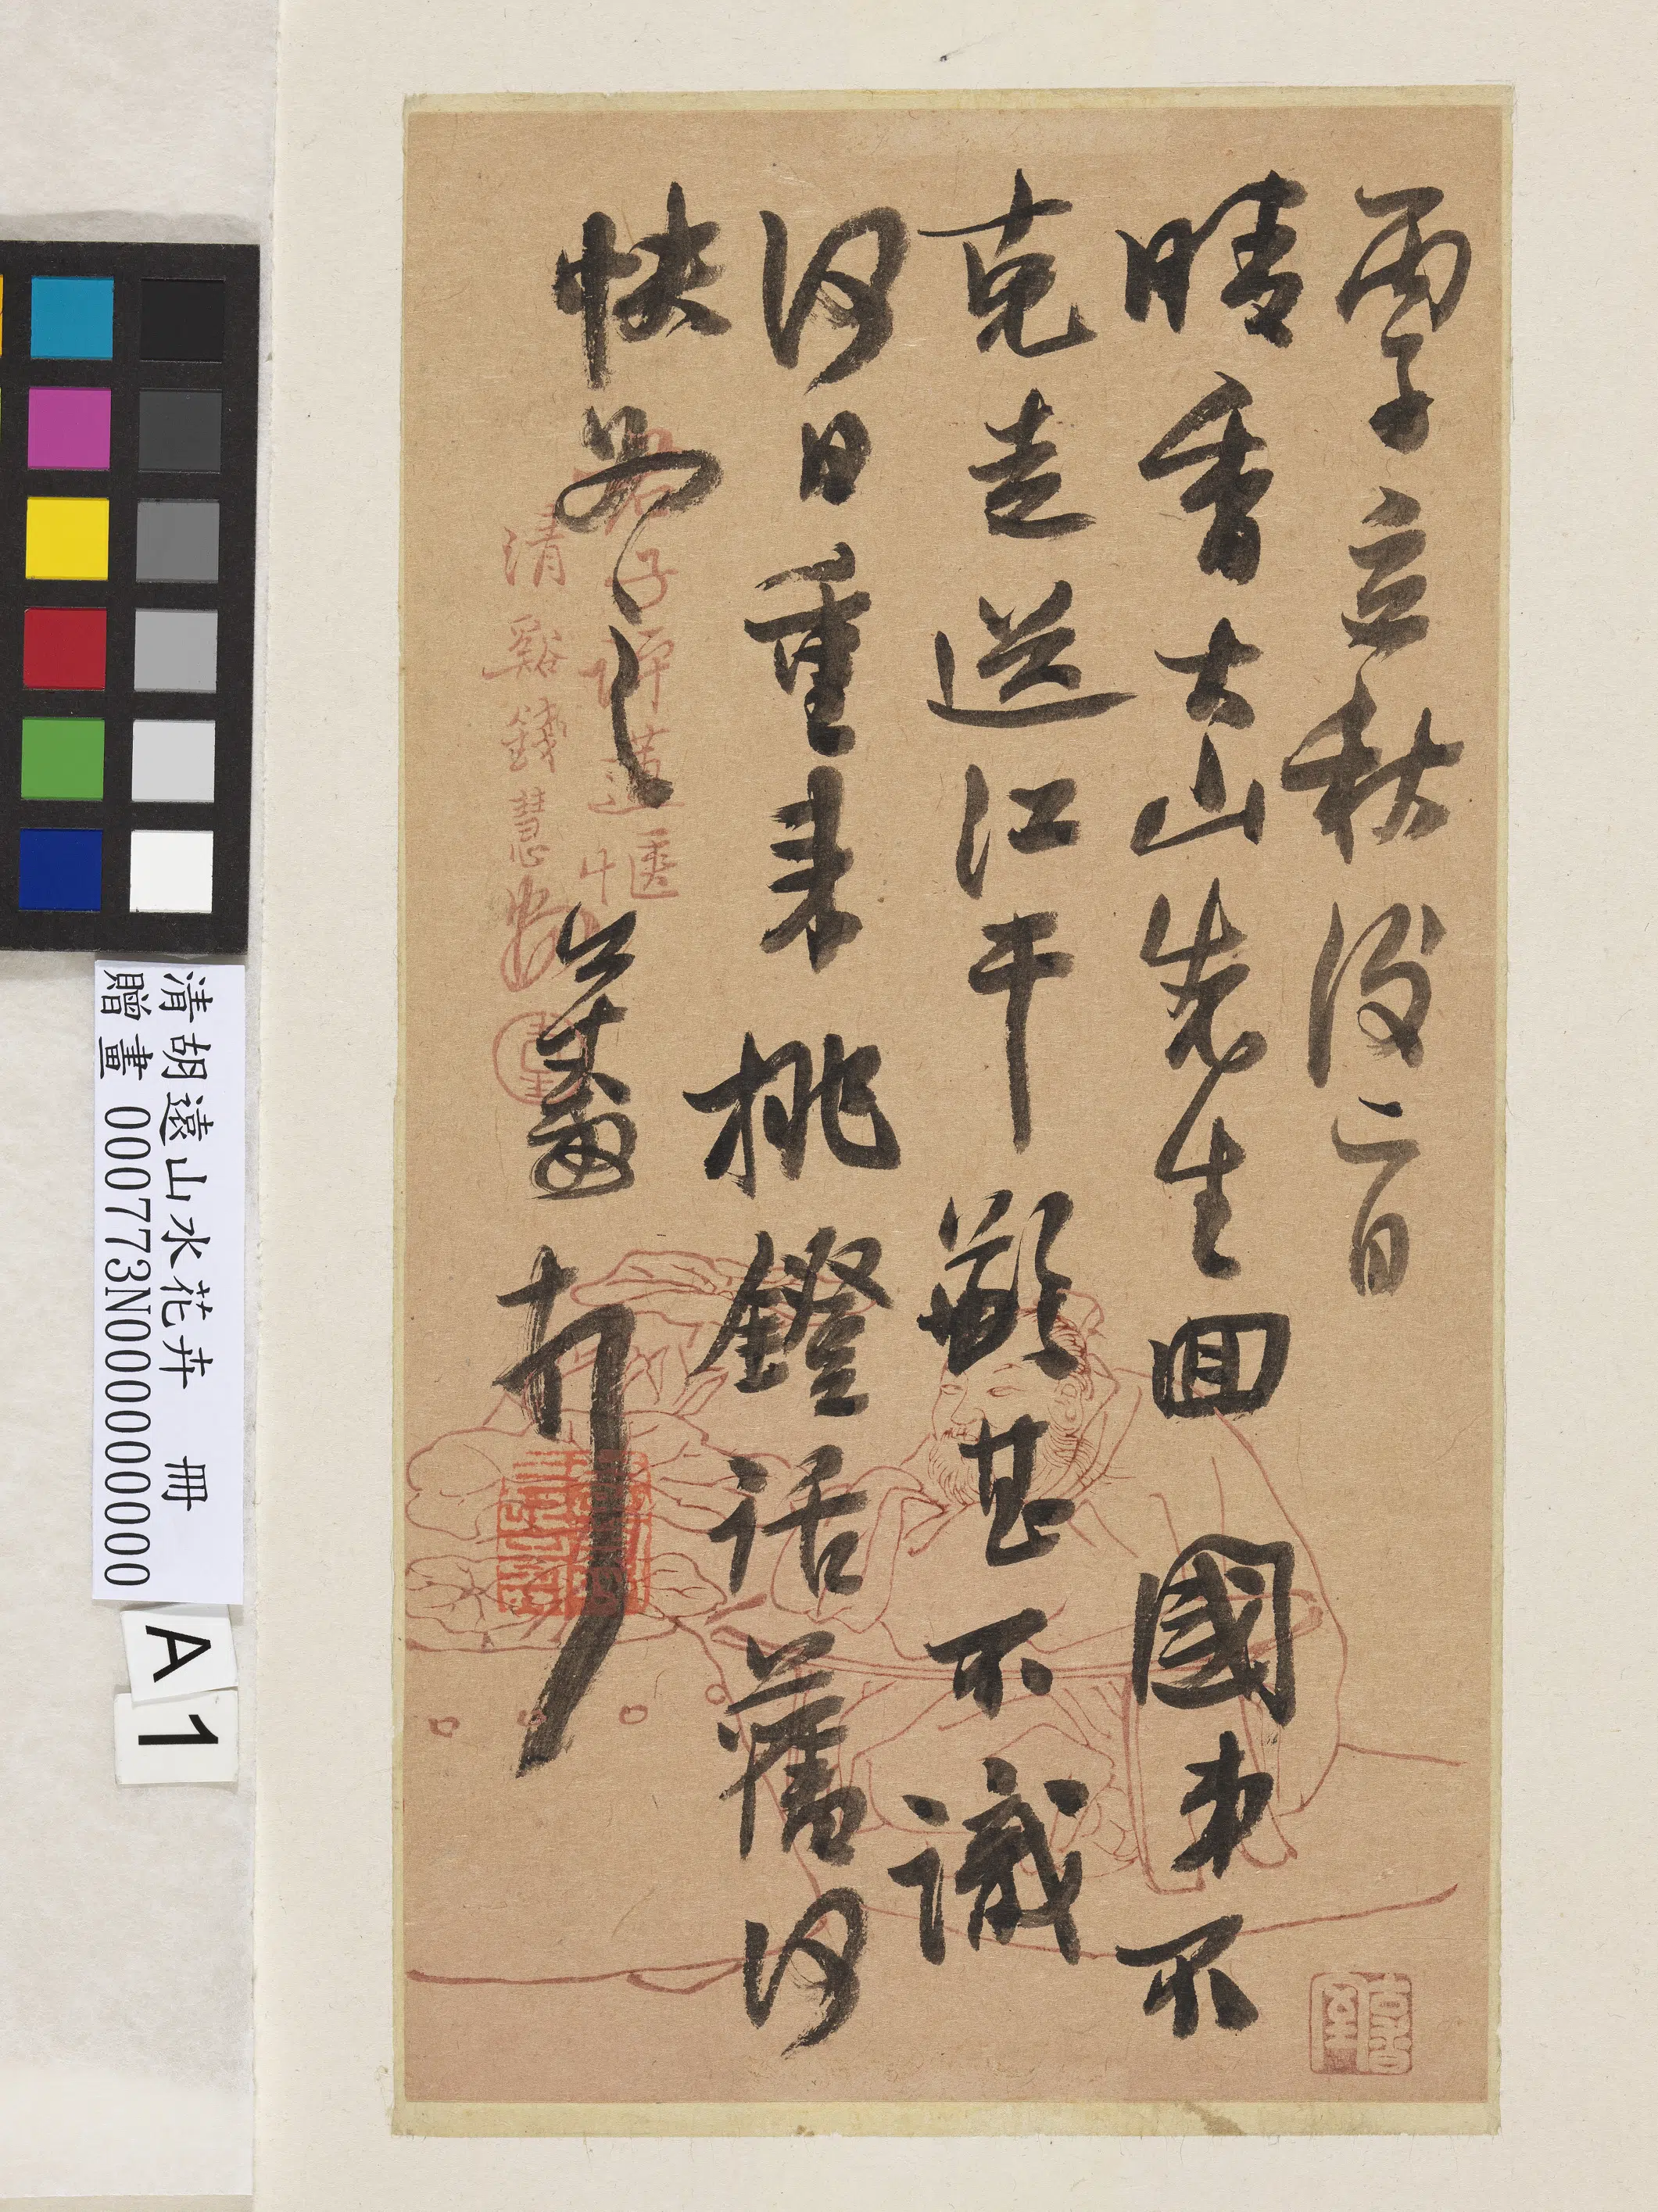 丙子立秋後二日
晴香大山先生回國弟不
克走送江干歉甚不識
何日重來挑鐙話舊何
快如之
公壽
清谿錢慧安
清胡遠山水花卉 冊
贈畫 000773N000000000
A
1